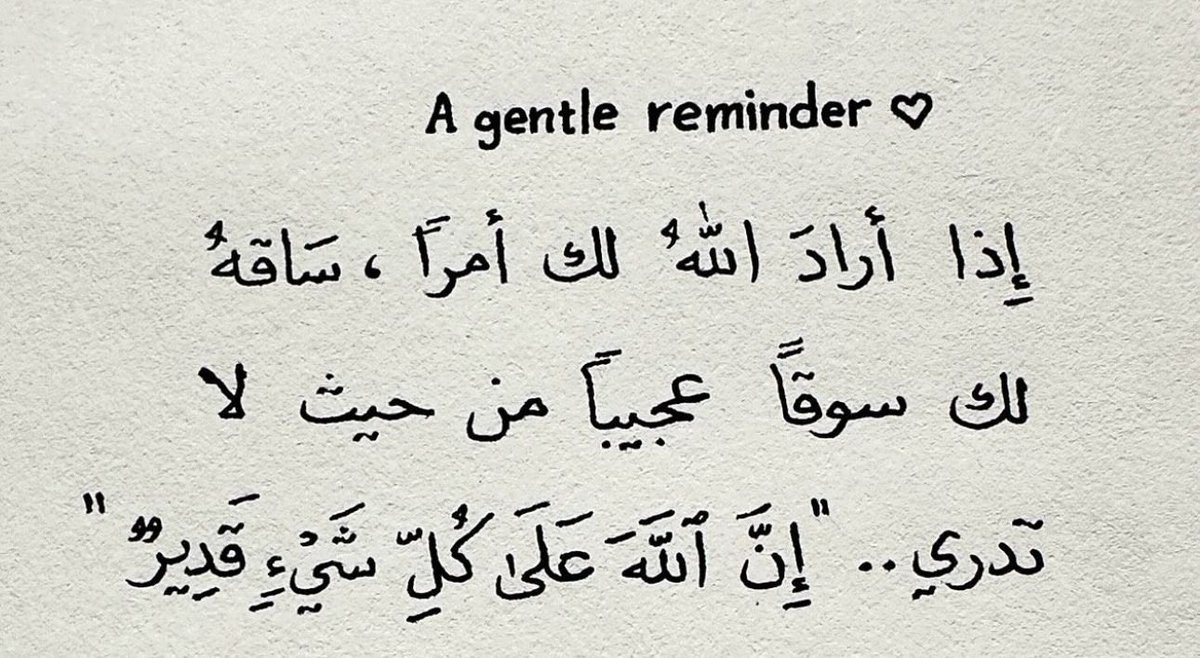 A gentle reminder ♡
إِذا أرادَ اللهُ لك أمراً ، سَاقهُ
لك سوقاً عجيباً من حيث لا
تدري .. "إِنَّ ٱللَّهَ عَلَىٰ كُلِّ شَيْءٍ قَدِيرٌ"